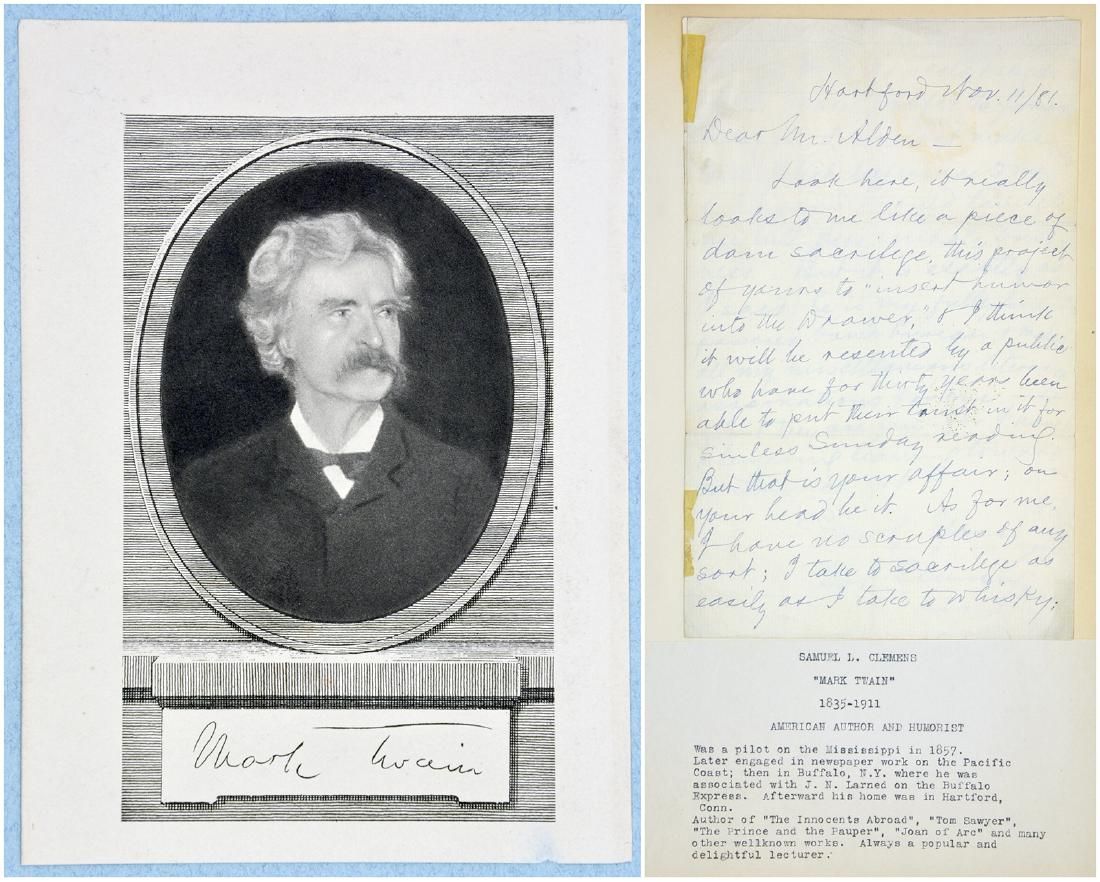 Mark Twain
Hartford Nov. 11/81.
Dear Mr. Alden —
Look here, it really
looks to me like a piece of
dam sacrilege, this project
of yours to "insert humor
into the Drawer," & I think
it will be resented by a public
who have for thirty years been
able to put their trust in it for
sinless Sunday reading.
But that is your affair; on
your head be it. As for me,
I have no scruples of any
sort; I take to sacrilege as
easily as I take to whisky;
SAMUEL L. CLEMENS
"MARK TWAIN"
1835-1911
AMERICAN AUTHOR AND HUMORIST
Was a pilot on the Mississippi in 1857.
Later engaged in newspaper work on the Pacific
Coast; then in Buffalo, N.Y. where he was
associated with J. N. Larned on the Buffalo
Express. Afterward his home was in Hartford,
Conn.
Author of "The Innocents Abroad", "Tom Sawyer",
"The Prince and the Pauper", "Joan of Arc" and many
other wellknown works. Always a popular and
delightful lecturer.